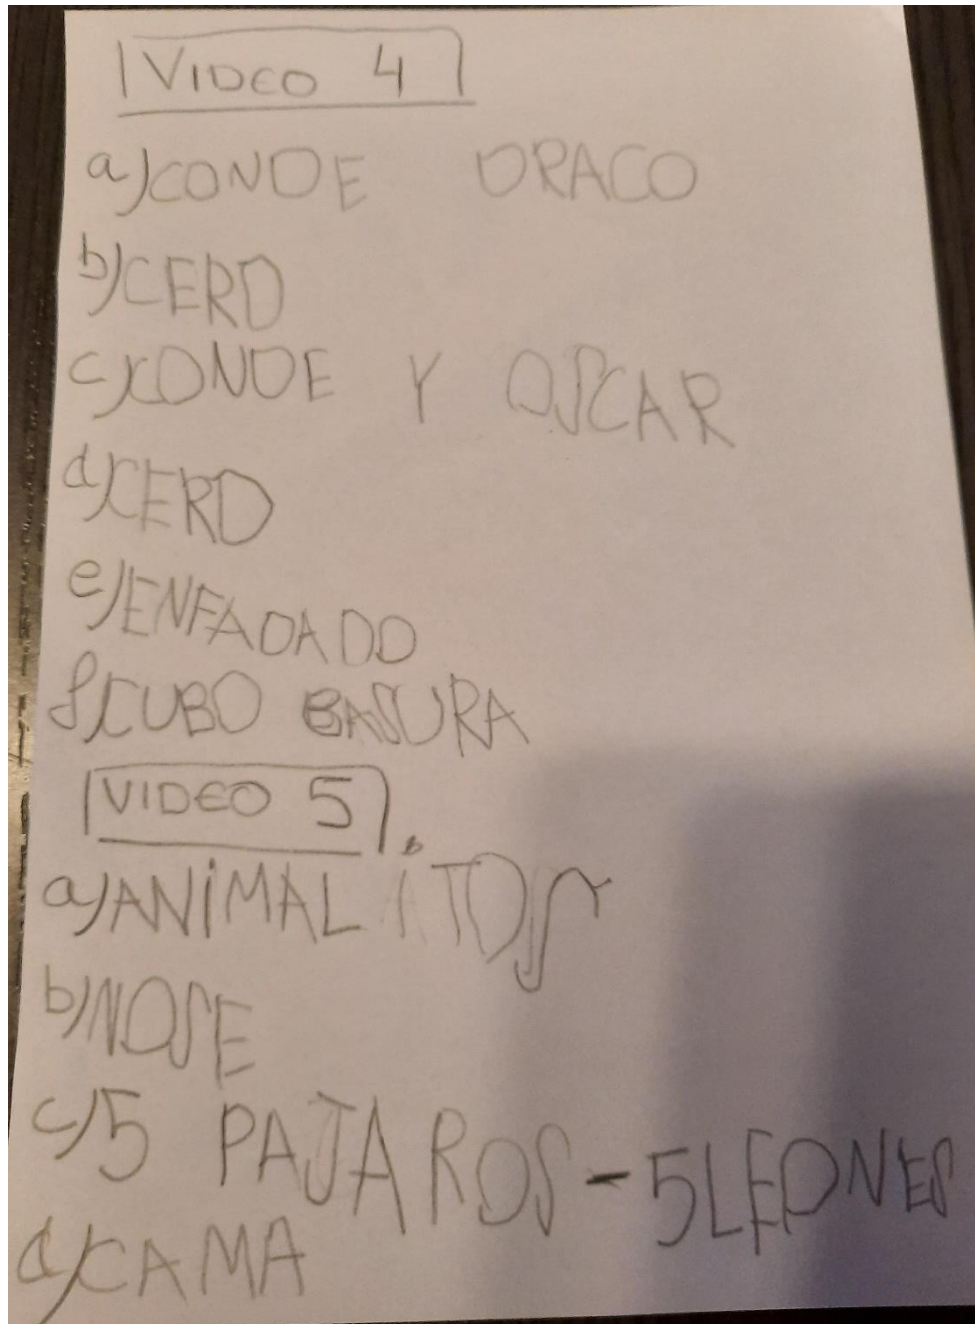 VIDEO 4
a) CONDE DRACO
b) CERO
c) CONDE Y OSCAR
d) CERO
e) ENFADADO
f) CUBO BASURA
VIDEO 5
a) ANIMALITOS
b) NOSE
c) 5 PAJAROS - 5 LEONES
d) CAMA